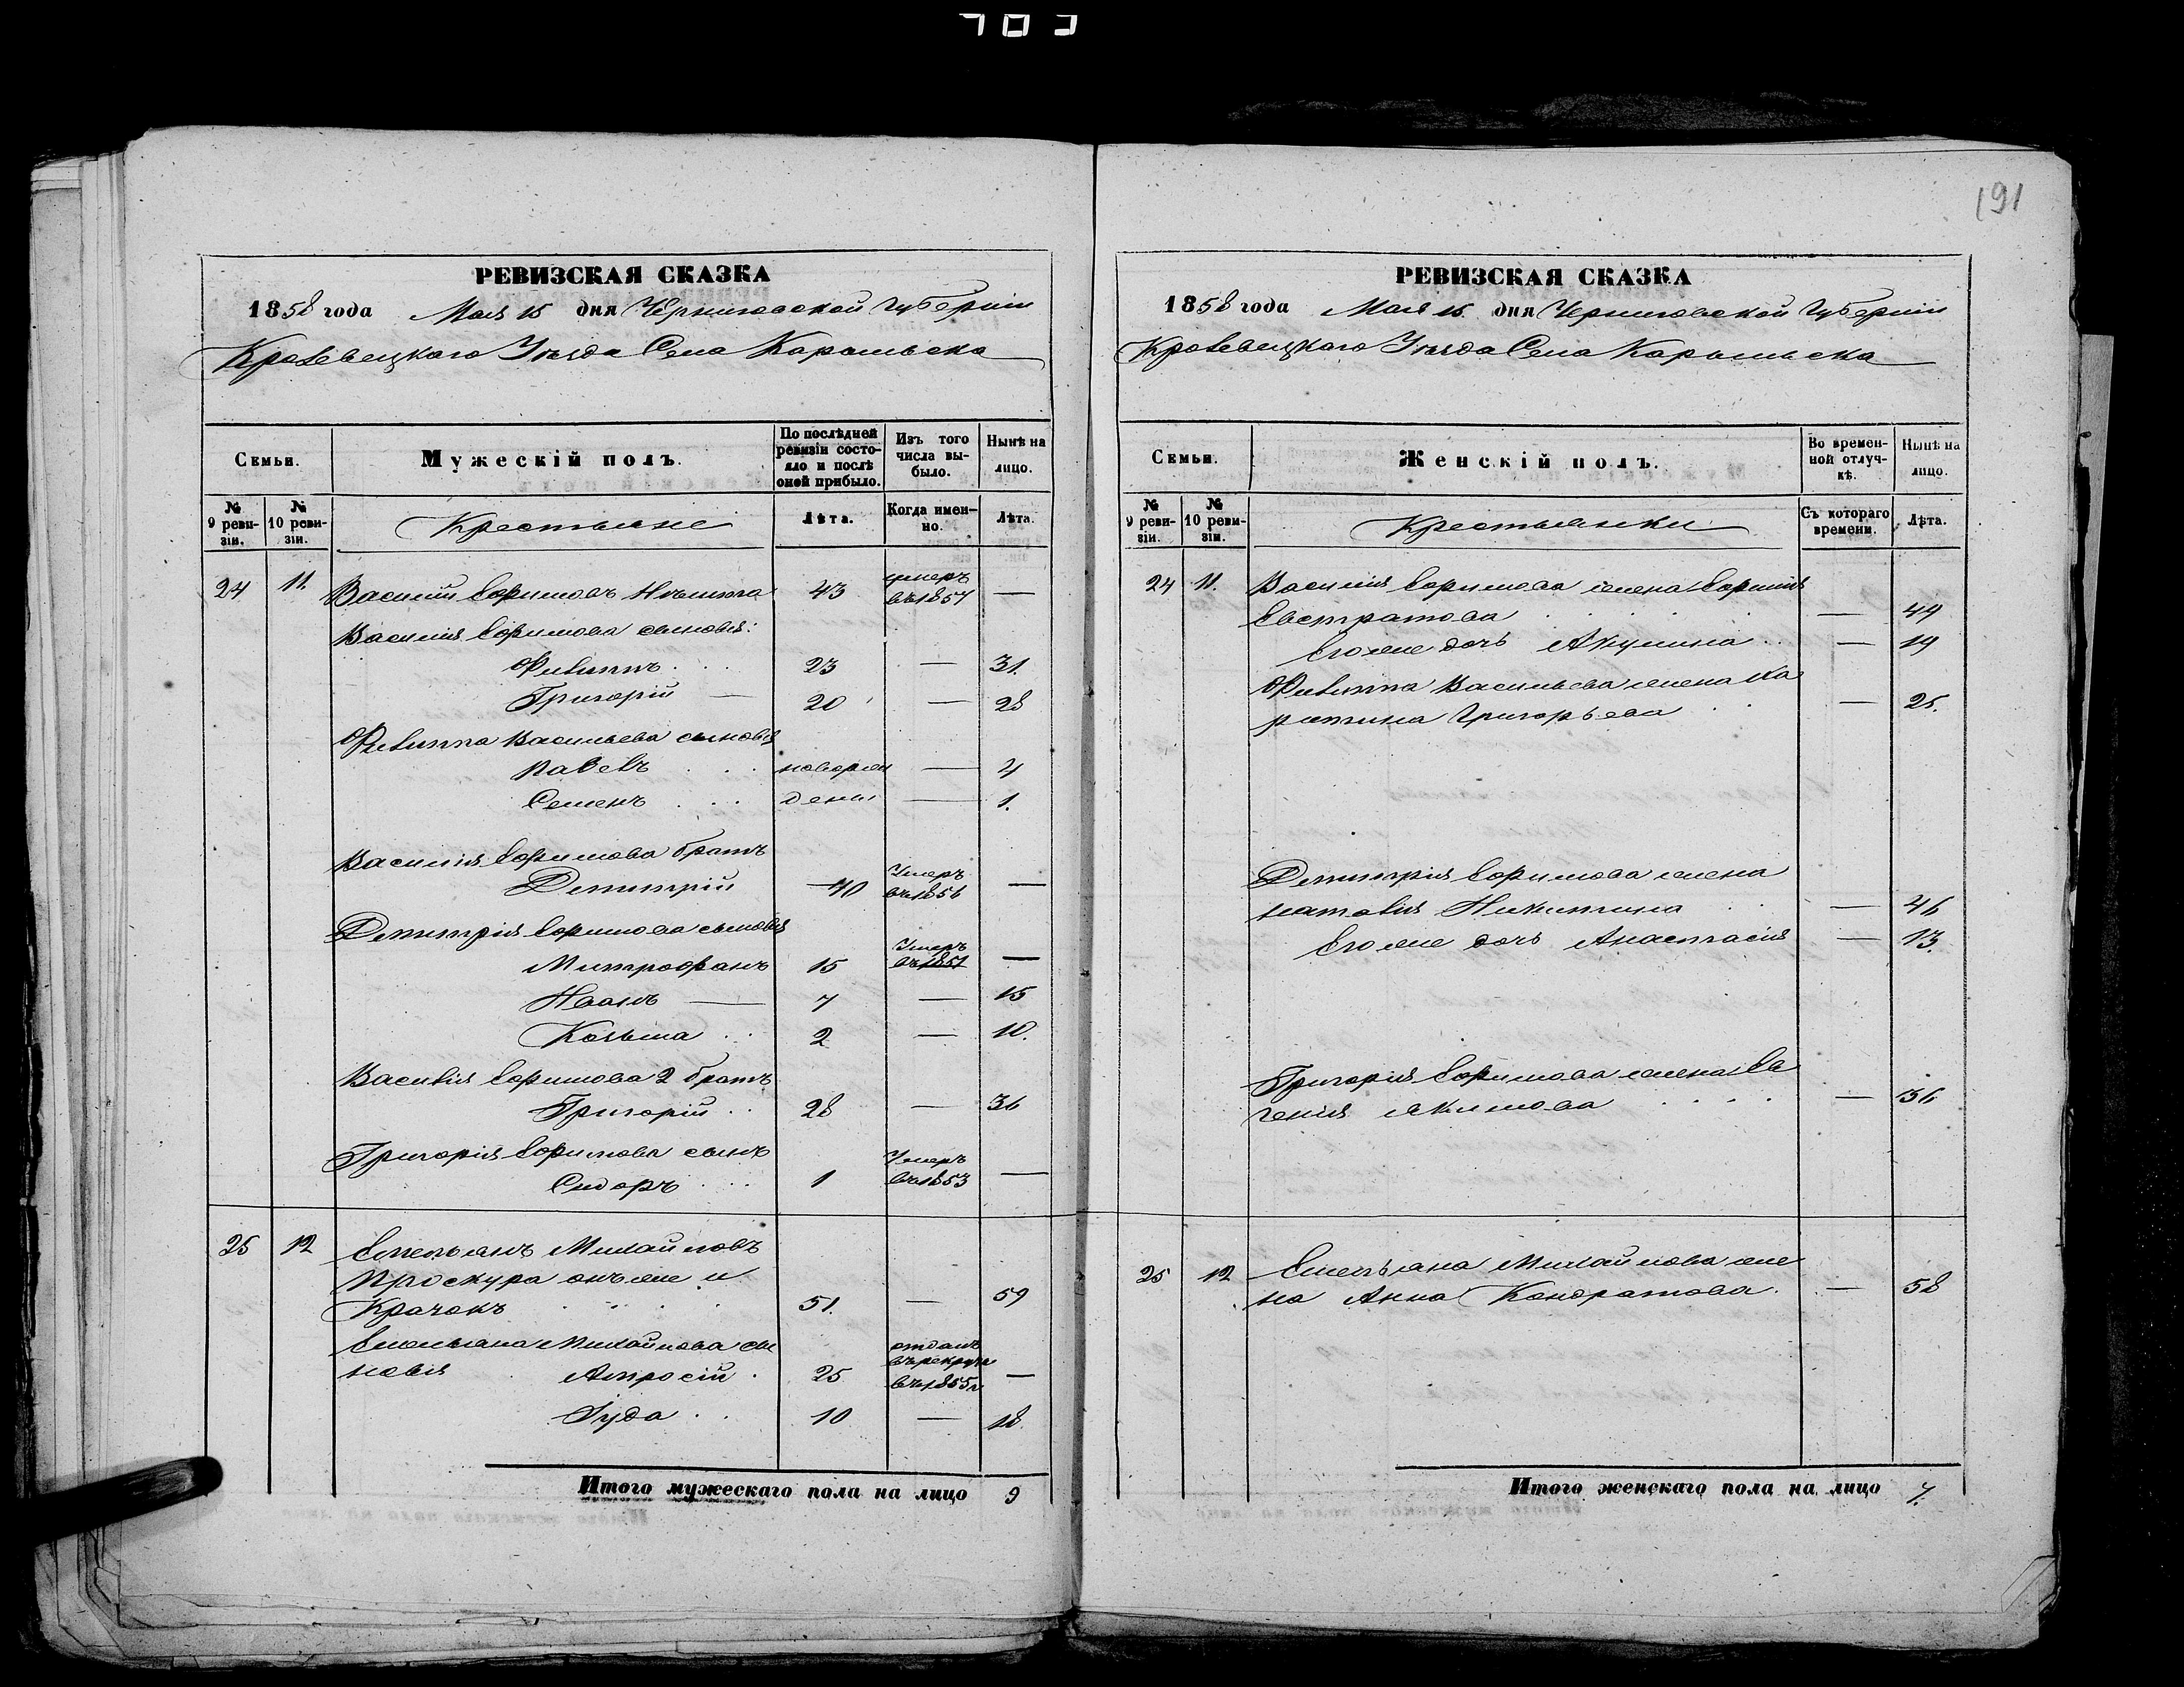 191
РЕВИЗСКАЯ СКАЗКА
1858 года Мая 15 дня Черниговской Губерніи
Кролевецкаго Уѣзда Села Карыльска
Семьи.
Мужескій полъ.
По послѣдней ревизіи состояло и послѣ оной прибыло.
Изъ того числа выбыло.
Нынѣ на лицо.
№ 9 ревизіи.
№ 10 ревизіи.
Крестьяне
Лѣта.
Когда именно.
Лѣта.
24 11. Василій Ефимовъ 43 умеръ въ 1857 —
Василія Ефимова сыновья:
Филиппъ . . 23 — 31.
Григорій — 20 — 28
Филиппа Васильева сыновья
Павелъ . . новорож — 4
Семенъ . . . дены — 1.
Василія Ефимова братъ
Демитрій 40 Умеръ въ 1856 —
Демитрія Ефимова сыновья
Митрофанъ 15 Умеръ въ 1851 —
Иванъ — 7 — 15
Козьма . . 2 — 10.
Василія Ефимова 2 братъ
Григорій . . 28 — 36
Григорія Ефимова сынъ
Сидоръ . . . 1 Умеръ въ 1853 —
25 12 Емельянъ Михайловъ
Проскура онъ же и
Крачокъ . . . . 51. — 59
Емельяна Михайлова сы
новья . Амросій . 25 отданъ въ рекруты въ 1855 г —
Іуда . . 10 — 18.
Итого мужескаго пола на лицо 9
РЕВИЗСКАЯ СКАЗКА
1858 года Мая 15. дня Черниговской Губерніи
Кролевецкаго Уѣзда Села Карыльска
Семьи.
Женскій полъ.
Во временной отлучкѣ.
Нынѣ на лицо.
№ 9 ревизіи.
№ 10 ревизіи.
Крестьянки
Съ котораго времени.
Лѣта.
24 11. Василія Ефимова жена Ефимія
Евстратова . . . . . — 49
Его же дочь Акулина . . — 19
Филиппа Васильева жена Ка
ритина Григорьева . . — 25.
Демитрія Ефимова жена
Наталія Никитина . — 46
Его же дочь Анастасія — 13.
Григорія Ефимова жена Ев
генія Якимова . . . . — 36
25 12 Емельяна Михайлова же
на Анна Кондратова . — 58
Итого женскаго пола на лицо 7.